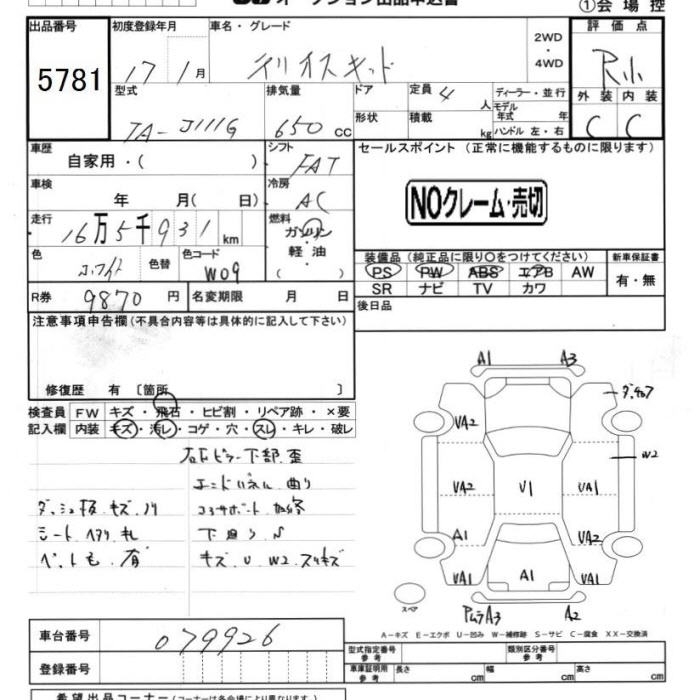 オークション出品申込書
①会場控
出品番号 初度登録年月 車名・グレード 2WD ・ 4WD 評価点
5781 17 1月 テリオスキッド R小
型式 排気量 ドア 定員 4人 ディーラー・並行 外装 内装
TA-J111G 650cc 形状 積載 kg モデル年式 年 C C
ハンドル 左・右
車歴 自家用・( ) シフト FAT セールスポイント(正常に機能するものに限ります)
車検 年 月( 日) 冷房 AC NOクレーム・売切
走行 16万5千931km 燃料 ガソリン 軽油 ( )
色 色替 色コード W09
装備品(純正品に限り○をつけてください) 新車保証書
PS PW ABS エアB AW 有・無
SR ナビ TV カワ
R券 9870円 名変期限 月 日 後日品
注意事項申告欄(不具合内容等は具体的に記入して下さい)
修復歴 有 〔箇所 〕
検査員記入欄 FW キズ・飛石・ヒビ割・リペア跡・×要
内装 キズ・汚レ・コゲ・穴・スレ・キレ・破レ
右Bピラー下部 歪
エンドパネル 曲り
ダッシュ板 キズ ノリ コアサポート 加修
シート ヘタリ 札 下廻り S
ペット毛 有 キズ U W2 スリキズ
A1 A3
UA2
W2
UA2 U1 UA1
A1 UA2
UA1 A1 UA1
スペア
A3 A2
A-キズ E-エクボ U-凹み W-補修跡 S-サビ C-腐食 XX-交換済
車台番号 079926
型式指定番号 参考 類別区分番号 参考
登録番号 車庫証明用 参考 長さ cm 幅 cm 高さ cm
希望出品コーナー(コーナーは各会場により異なります)